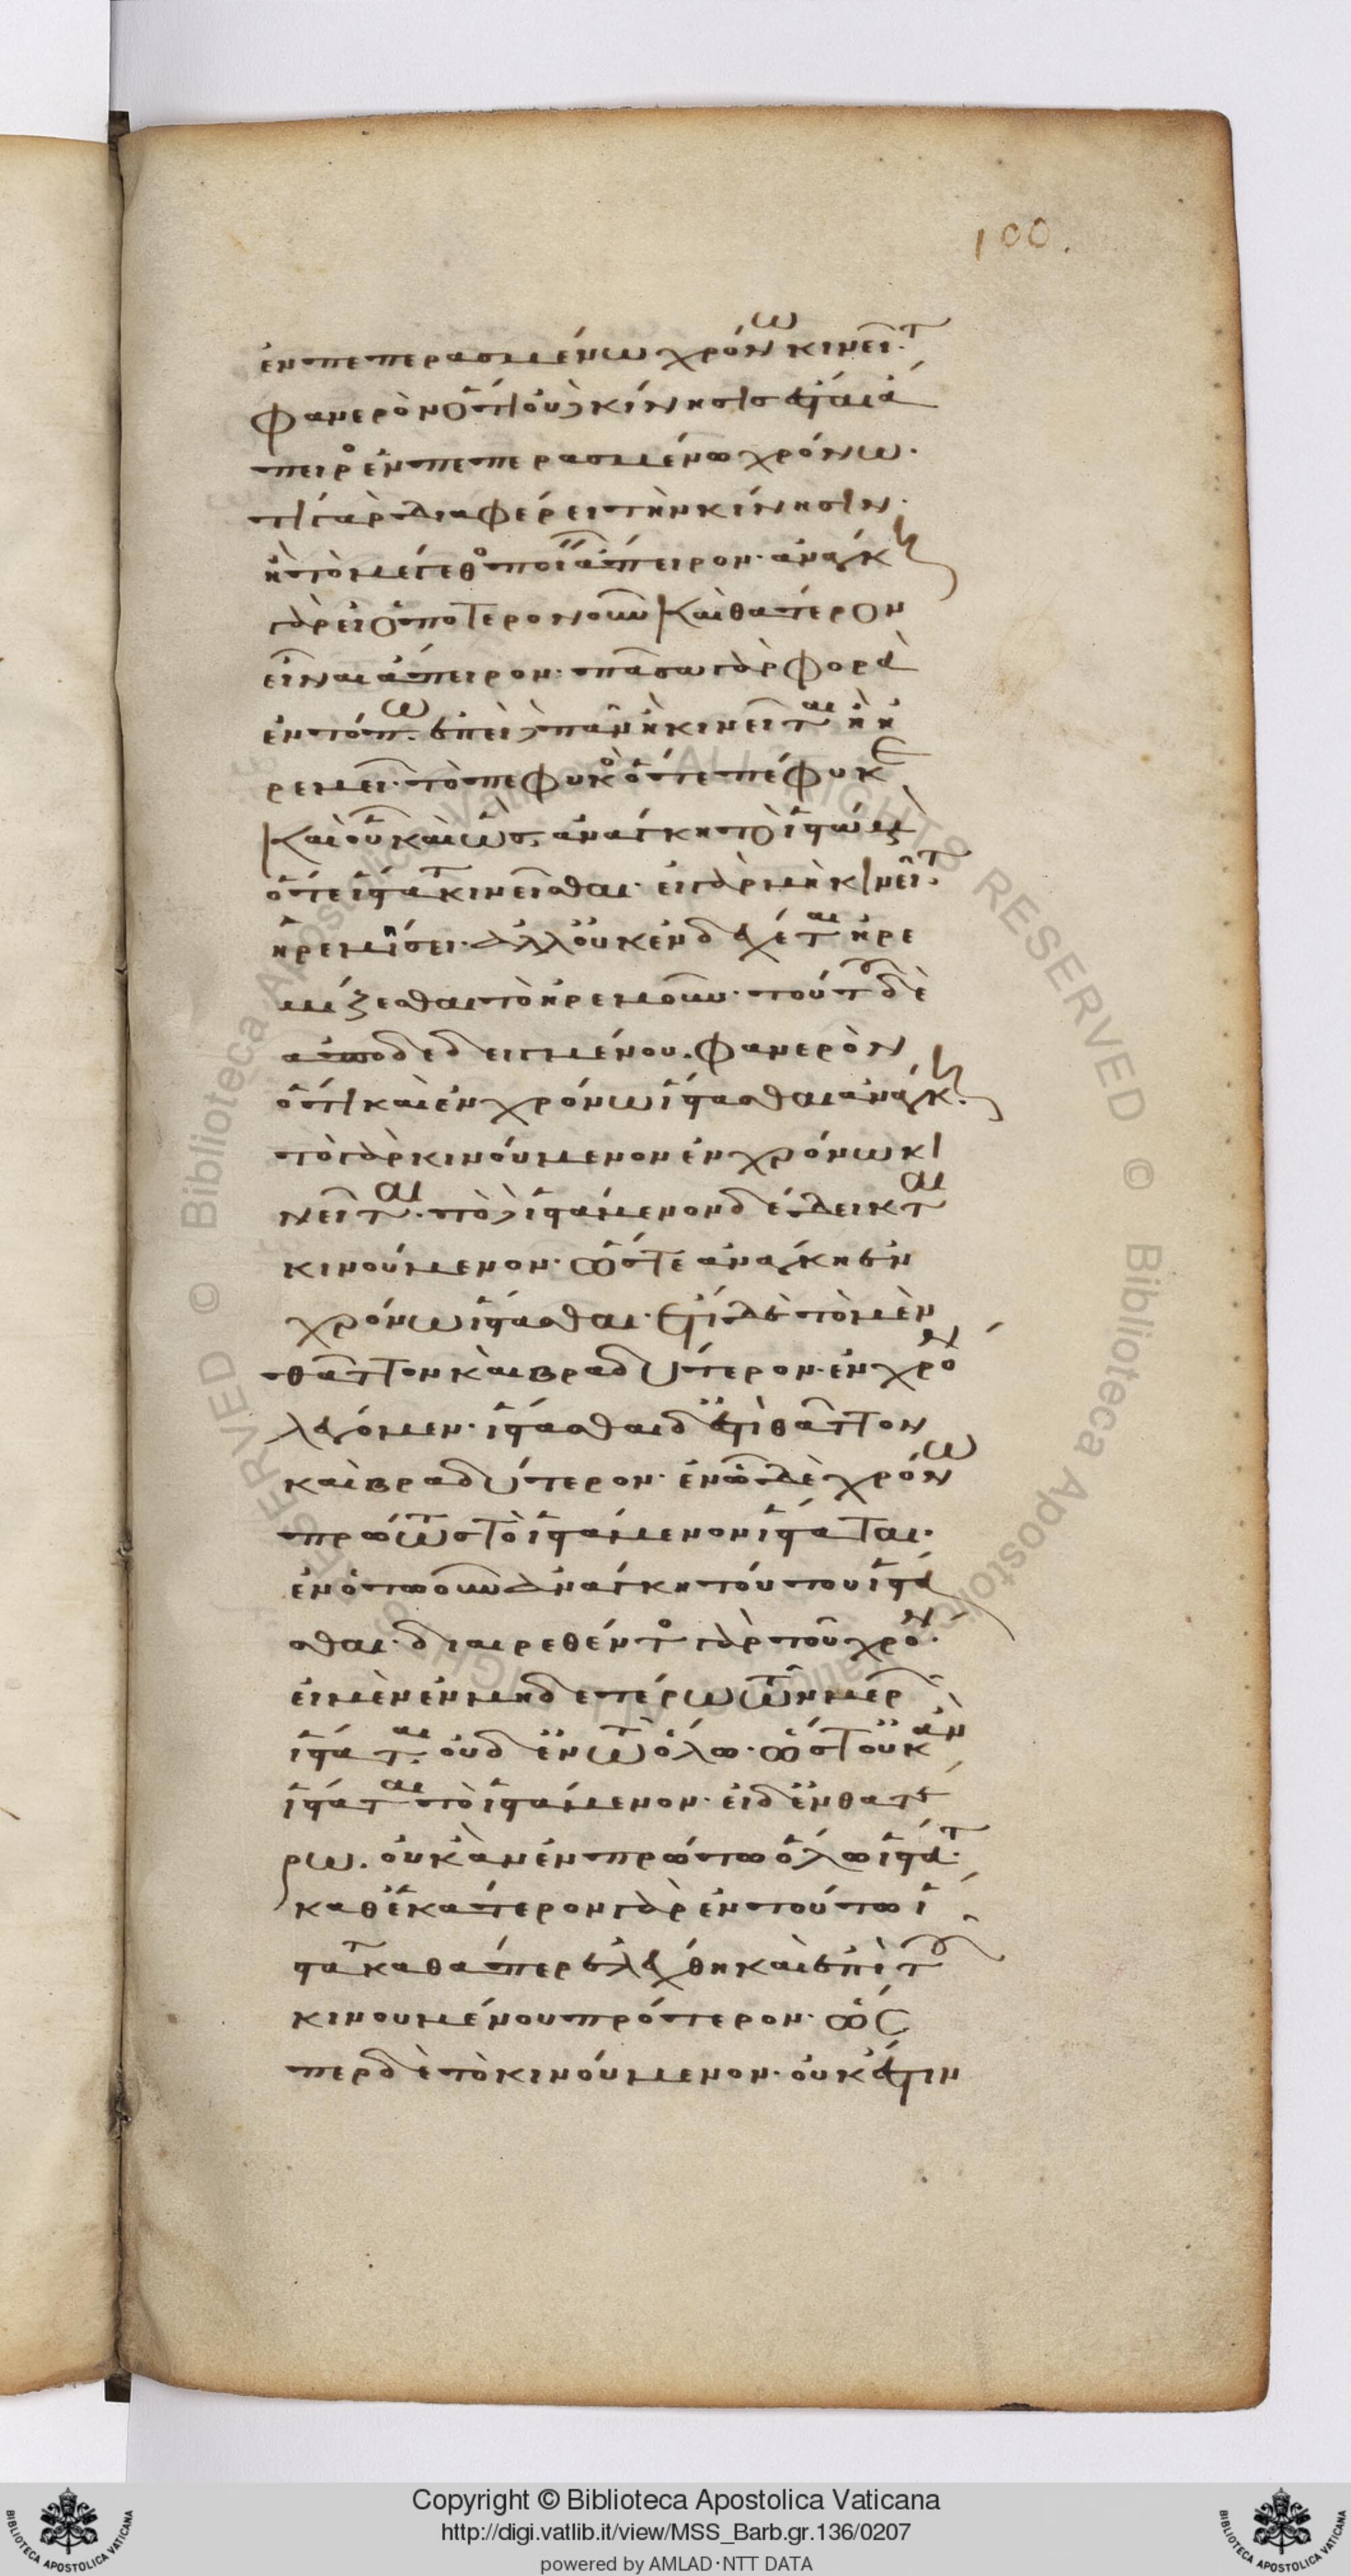 100.
ἐν πεπερασμένω χρόνω κινεῖτ.
φανερὸν ὅτι οὐδὲ κίνησις ἔσται ἄ
πειρος ἐν πεπερασμένω χρόνω.
τί γὰρ διαφέρει τὴν κίνησιν.
ἢ τὸ μέγεθος ποιεῖν ἄπειρον· ἀνάγκη
γὰρ εἰ ὁποτερονοῦν καὶ θάτερον
εἶναι ἄπειρον· πᾶσα γὰρ φορὰ
ἐν τόπω. ἐπεὶ δὲ πᾶν ἢ κινεῖται ἢ ἠ
ρεμεῖ· τὸ πεφυκὸς ὅτε πέφυκε
καὶ οὗ καὶ ὥς, ἀνάγκη τὸ ἱστάμε
ὅτε ἵσταται κινεῖσθαι· εἰ γὰρ μὴ κινεῖτ.
ἠρεμήσει· ἀλλ' οὐκ ἐνδέχεται ἠρε
μίζεσθαι τὸ ἠρεμοῦν· τούτου δὲ
ἀποδεδειγμένου. φανερὸν
ὅτι καὶ ἐν χρόνω ἵστασθαι ἀνάγκη.
τὸ γὰρ κινούμενον ἐν χρόνω κι
νεῖται· τὸ δὲ ἱστάμενον δέδεικται
κινούμενον· ὥστε ἀνάγκη ἐν
χρόνω ἵστασθαι· ἔτι δὲ τὸ μὲν
θᾶττον καὶ βραδύτερον· ἐν χρόν
λέγομεν· ἵστασθαι δ' ἔστι θᾶττον
καὶ βραδύτερον· ἐν ᾧ δὲ χρόνω
πρώτως τὸ ἱστάμενον ἵσταται·
ἐν ὁτωοῦν ἀνάγκη τούτου ἵστα
σθαι· διαιρεθέντος γὰρ τοῦ χρόν·
εἰ μὲν ἐν μηδετέρω τῶν μερ
ἵσταται· οὐδ' ἐν τῶ ὅλω· ὥστ' οὐκ ἂν
ἵσταται τὸ ἱστάμενον· εἰ δ' ἐν θατέ
ρω. οὐκ ἂν ἐν πρώτω ὅλω ἵστατ·
καθ' ἑκάτερον γὰρ ἐν τούτω ἵ
σταται καθάπερ ἐλέχθη καὶ ἐπὶ τοῦ
κινουμένου πρότερον· ὥς
περ δὲ τὸ κινούμενον· οὐκ ἔστιν
Copyright © Biblioteca Apostolica Vaticana
http://digi.vatlib.it/view/MSS_Barb.gr.136/0207
powered by AMLAD·NTT DATA